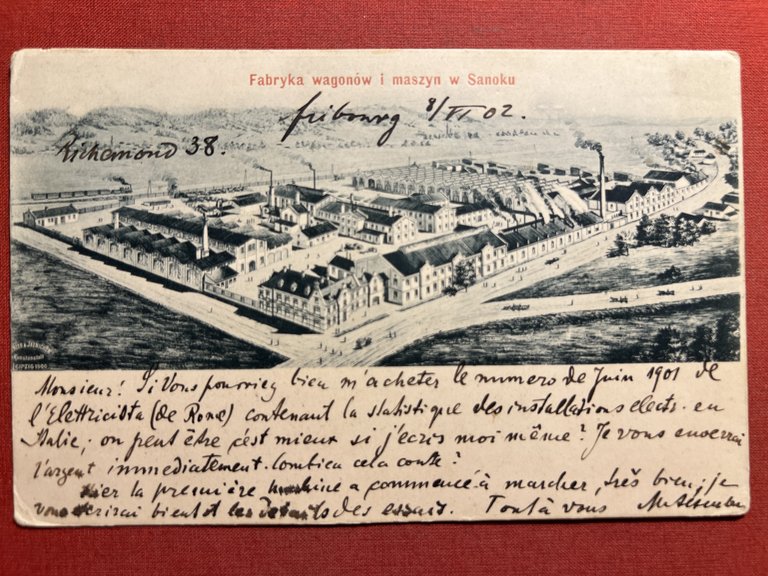 Fabryka wagonów i maszyn w Sanoku
fribourg 8/VI 02.
Richemond 38.
LEIPZIG 1900
Monsieur! Si Vous pouvieg bien m'acheter le numero de Juin 1901 de
l'Elettricista (de Rome) contenant la statistique des installations elects. en
Italie; on peut être c'est mieux si j'ecris moi même? Je vous enverrai
l'argent immediatement. Combien cela coute?
Hier la première machine a commencé à marcher, très bien; je
vous ecrirai bientôt les details des essais. Tout à vous